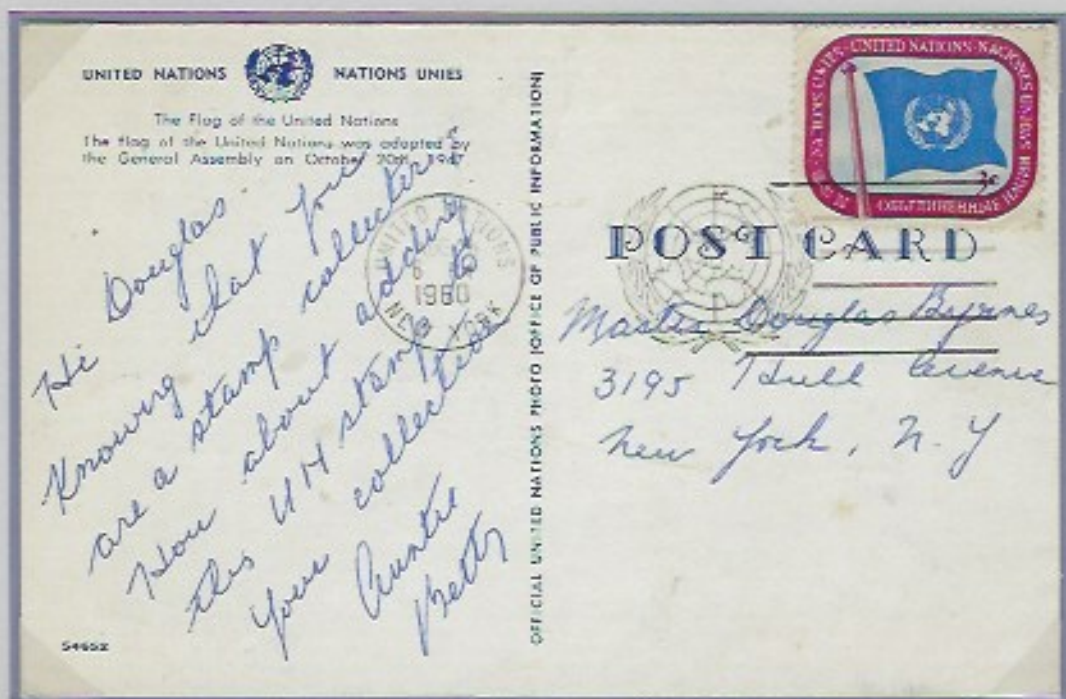 UNITED NATIONS NATIONS UNIES
The Flag of the United Nations
The flag of the United Nations was adopted by
the General Assembly on October 20th, 1947
Hi Douglas
Knowing that you
are a stamp collector
How about adding
this UN stamp to
your collection
Auntie
Betty
54652
OFFICIAL UNITED NATIONS PHOTO (OFFICE OF PUBLIC INFORMATION)
UNITED NATIONS
6
1960
NEW YORK
NATIONS UNIES · UNITED NATIONS · NACIONES UNIDAS
ОБЪЕДИНЕННЫЕ НАЦИИ
3c
POST CARD
Master Douglas Byrnes
3195 Hull Avenue
New York, N.Y